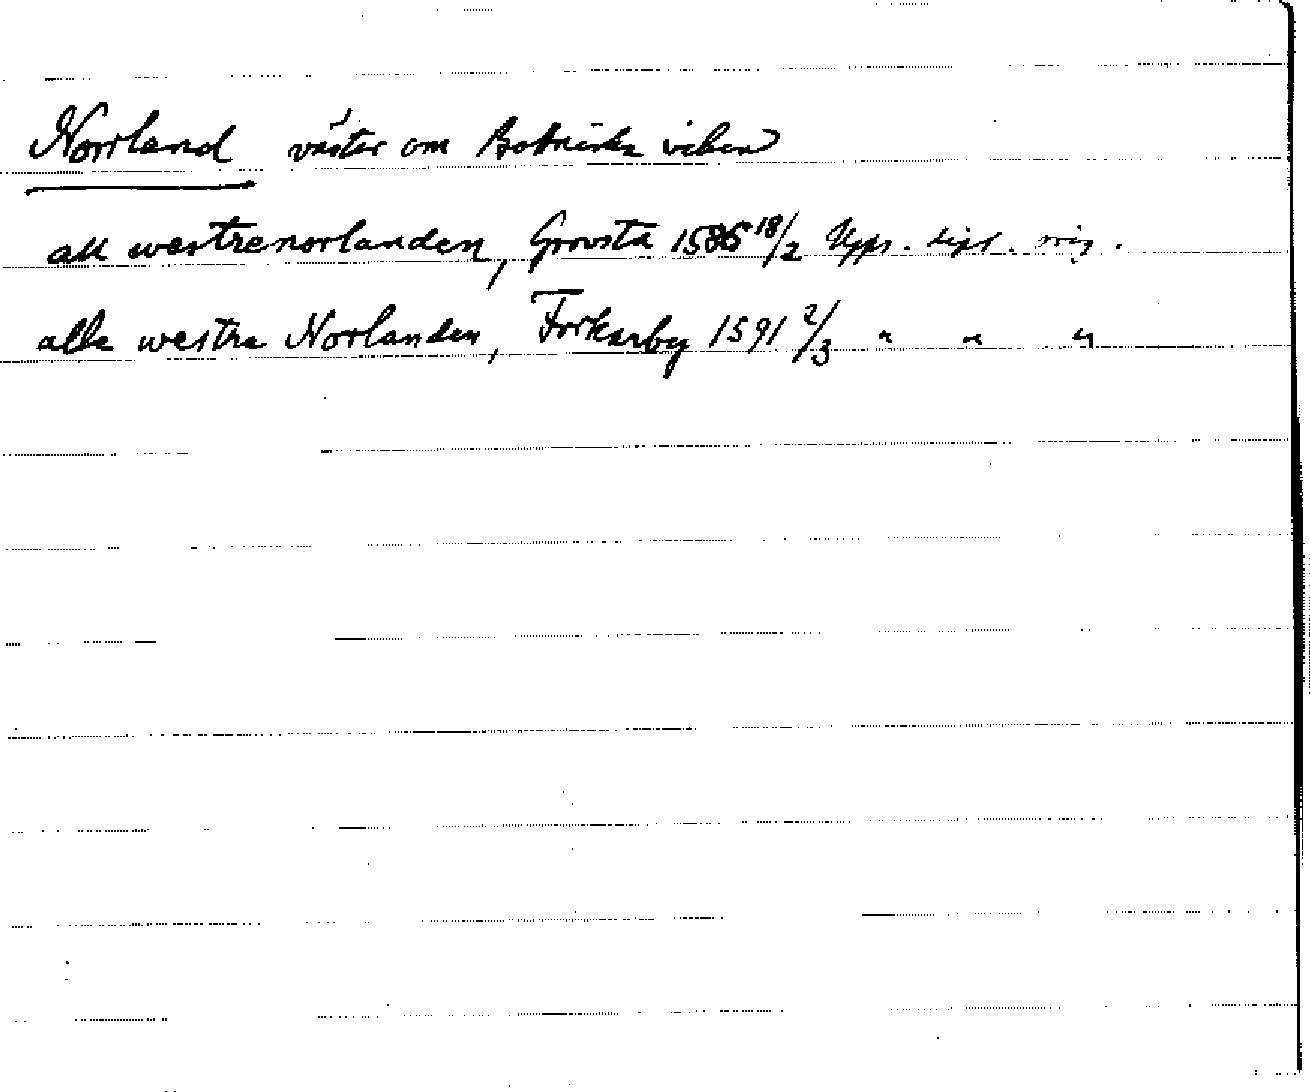 Norrland väster om Bottniska viken
all westrenorlanden, Grovsta 1586 18/2 Upps. dipl. orig.
alle westra Norlanden, Torkarby 1591 2/3 " " "